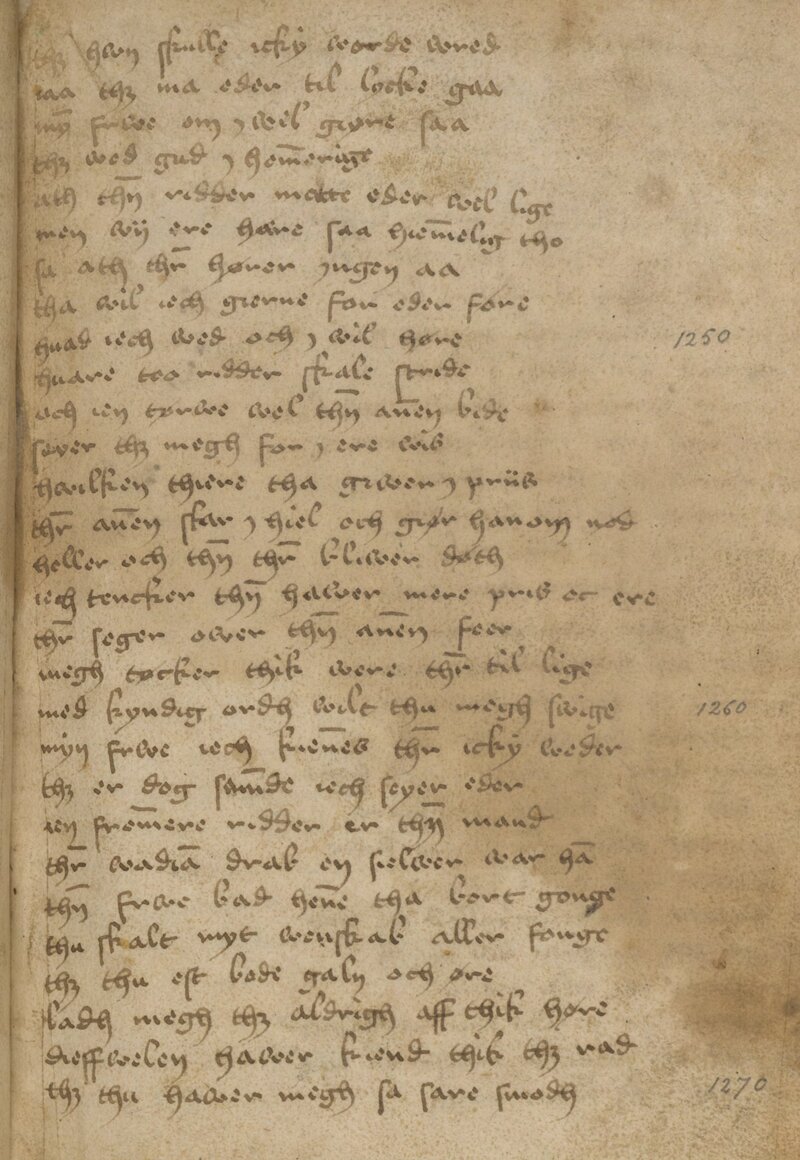 thꝫ hwn skulle icky worde wred
iaa thꝫ ma eder til locke gaa
my̅ frwe om ȷ wel giøre saa
thꝫ wed gud ȷ home̅rige
ath thn̅ ridder motte eder wel lige
men wÿ ere hare saa hieme̅lig tho
sa ath thr̅ hører jngen aa
tha wil iech gierne for eder føre
huad iech wed och ȷ wil høre 1250
huare too ridder skale stride
och ien tørwe wel thn̅ ane̅n bide
seyer thꝫ megh for ȷ ere wis
hwilken thiere tha giwer ȷ priis
thr̅ ane̅n slar ȷ hiel och giør hanom nod
heller och thn̅ thr̅ bliwer døth
iech tencker thn̅ hawer mere pris oc ere
thr̅ seger ower thn̅ ane̅n feer
megh tøcker thik were thr̅ til lige
med kyndig ordh wilt thu megh swige 1260
myn frwe iech kiene̅s thr̅ icky weder
thꝫ er dog sam̅de iech seyer eder
ien frem̅ere ridder er thn̅ mand
thr̅ wadia̅ drab en sielwer war ha̅
thn̅ frwe bad hene̅ tha bort gonge
thu skalt myt wenskab aller fonge
thꝫ thu est bode galn och øre
ladh megh thꝫ aldrigh aff thik høre
dieffwelen hawer kiend thik thꝫ rad
thꝫ thu hawer megh sa sare smodh 1270